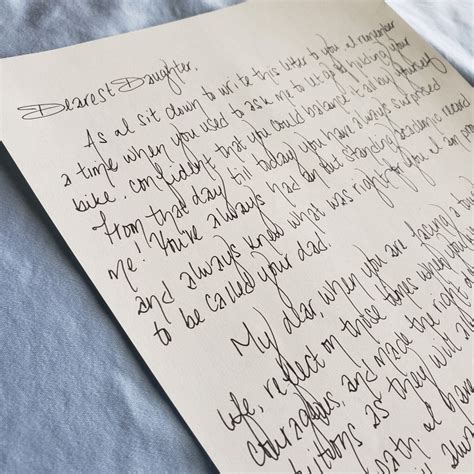 Dearest Daughter,
As I sit down to write this letter to you, I remember
a time when you used to ask me to let go of holding your
bike. confident that you could balance it all by yourself
From that day till today you have always surprised
me! You've always had an out standing academic record
and always knew what was right for you. I am
to be called your dad.
My dear, when you are facing a
life, reflect on those times when you
courageous, and made the right
as they will